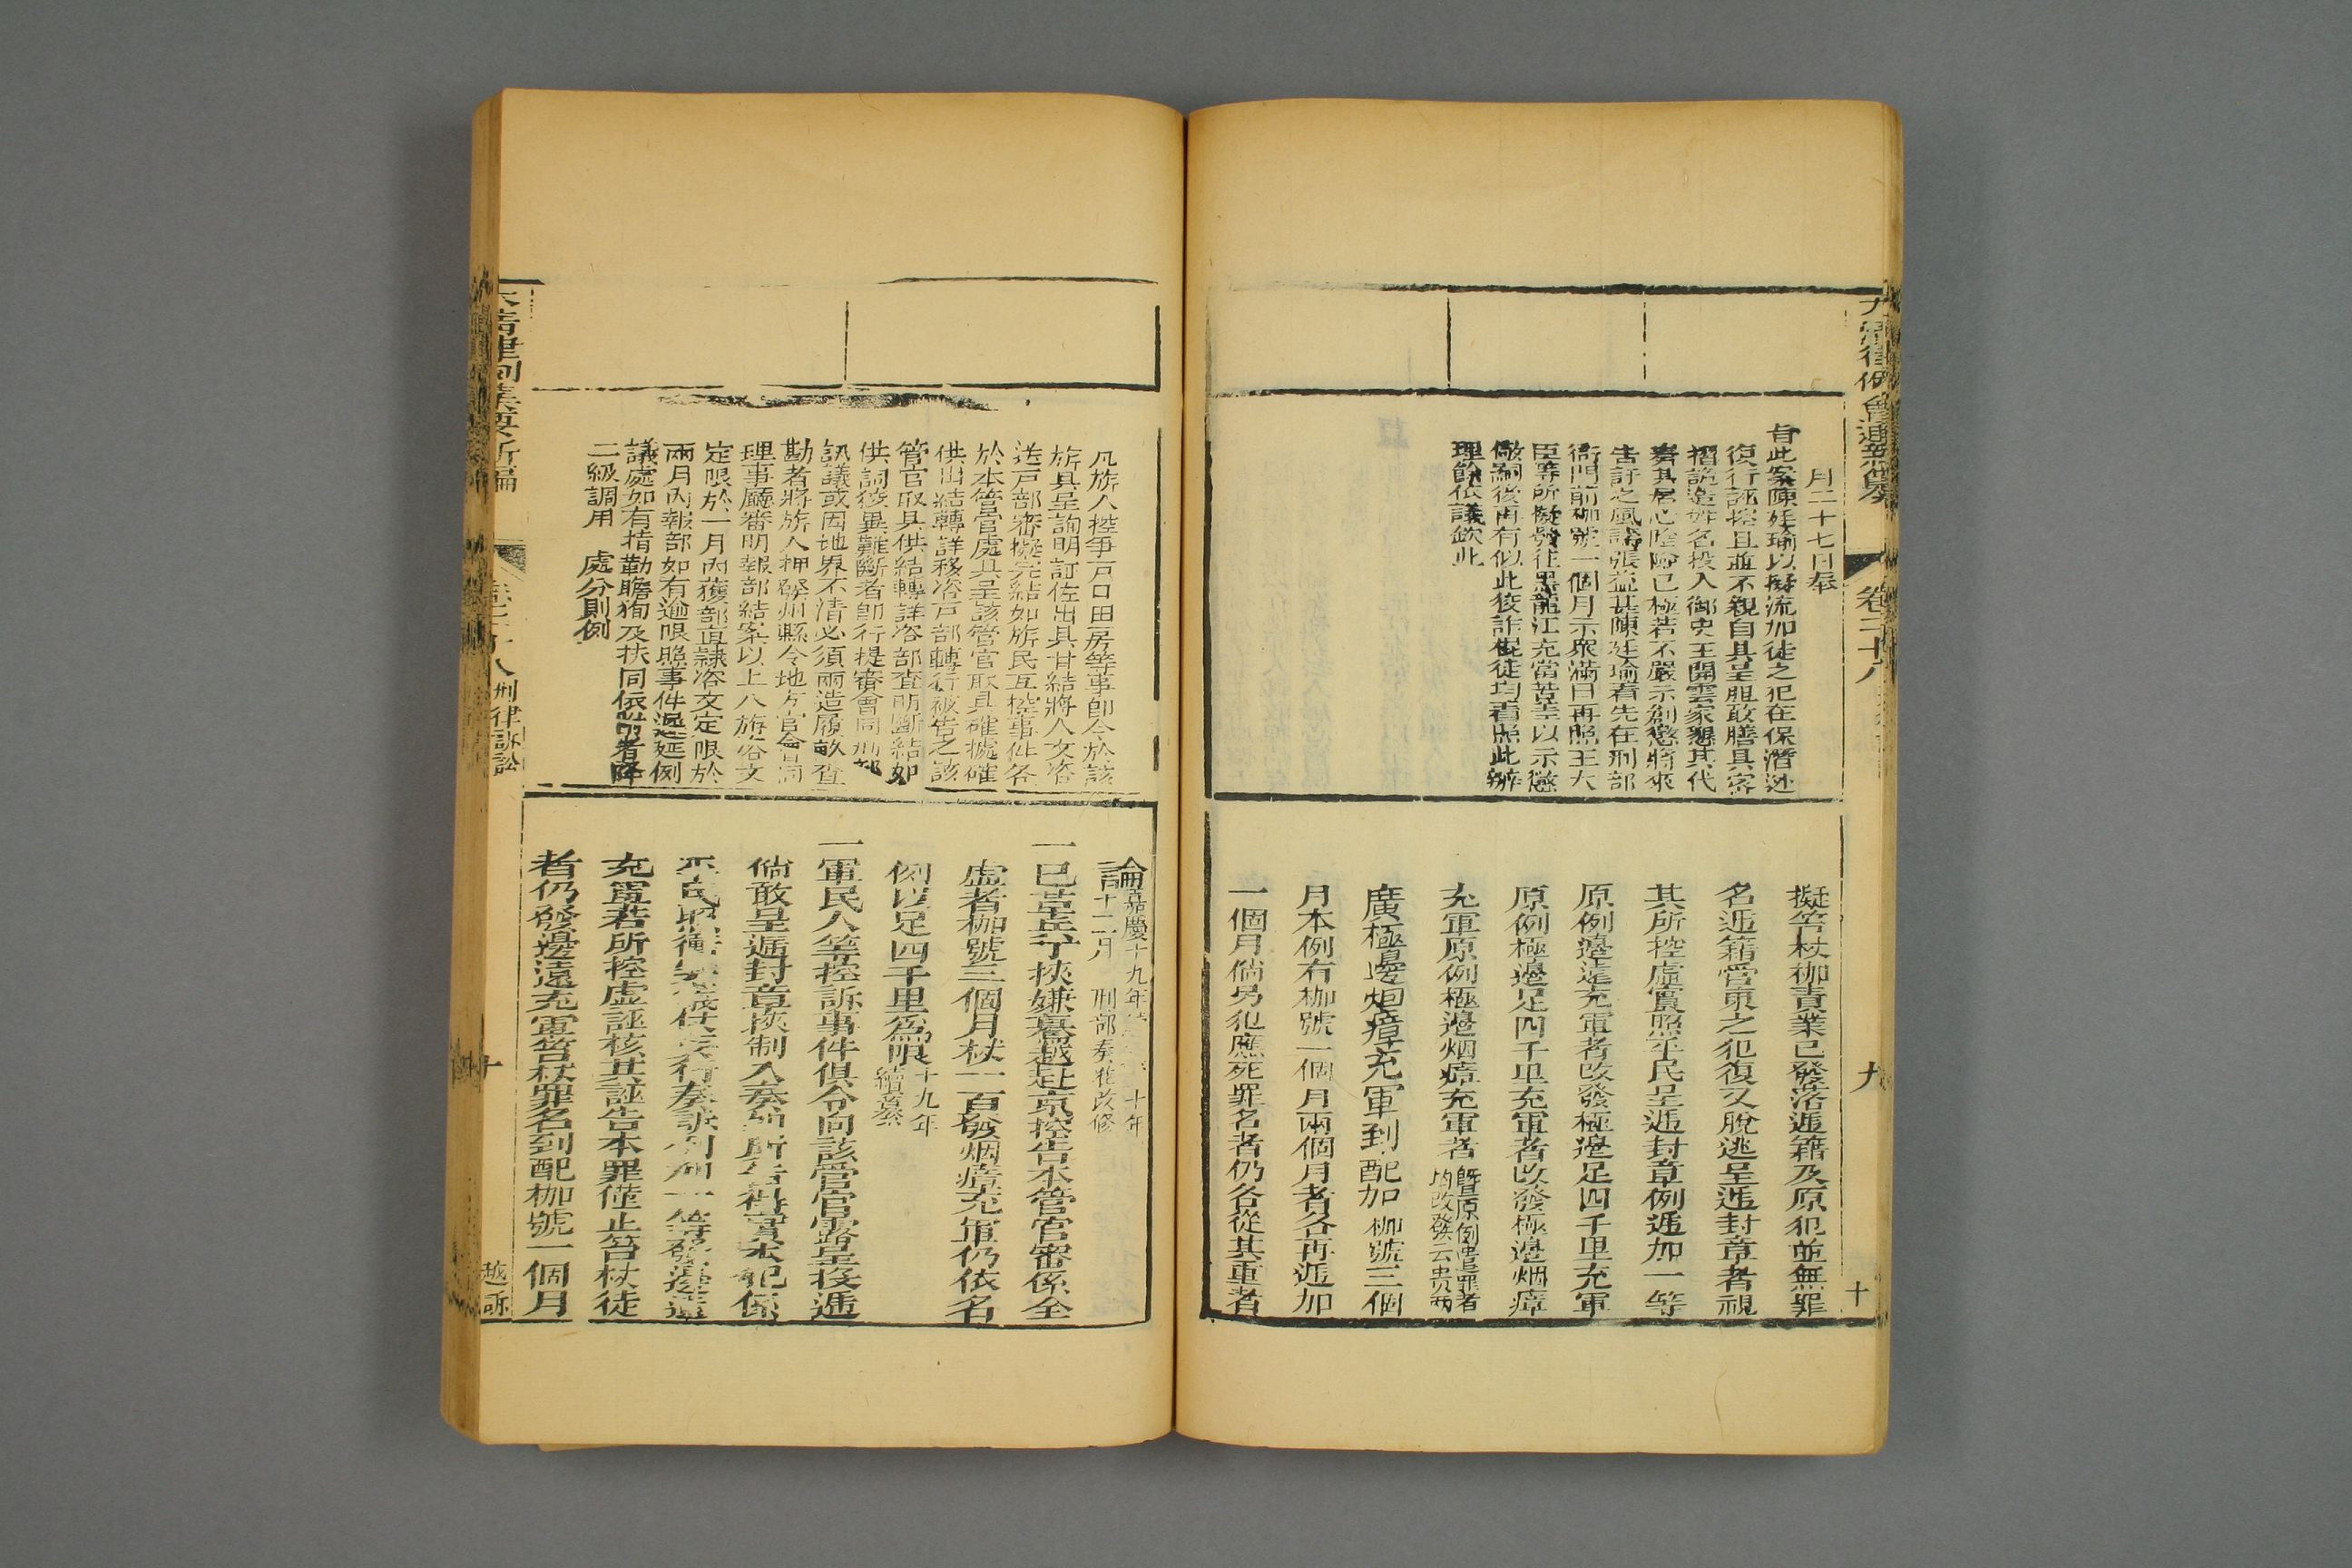 卷二十八
九
十
月二十七日奉
旨此案陳廷瑜以擬流加徒之犯在保潛逃
復行誣控且並不親自具呈胆敢膳具密
摺詭造姓名投入御史王開雲家懇其代
奏其居心陰險已極若不嚴示創懲將來
告訐之風譸張益甚陳廷瑜着先在刑部
衙門前枷號一個月示眾滿日再照王大
臣等所擬發往黑龍江充當苦差以示懲
儆嗣後再有似此狡詐棍徒均着照此辦
理餘依議欽此
擬笞杖枷責業已發落遞籍及原犯並無罪
名遞籍管束之犯復又脫逃呈遞封章者視
其所控虛實照平民呈遞封章例遞加一等
原例邊遠充軍者改發極邊足四千里充軍
原例極邊足四千里充軍者改發極邊烟瘴
充軍原例極邊烟瘴充軍者暨原例遣罪者均改發云貴兩
廣極邊烟瘴充軍到配加枷號三個
月本例有枷號一個月兩個月者各再遞加
一個月倘另犯應死罪名者仍各從其重者
凡旂人控爭戸口田房等事卽令於該
旂具呈詢明訂佐出具甘結將人文咨
送戸部審擬完結如旂民互控事件各
於本管官處具呈該管官取具確據確
供出結轉詳移咨戸部轉行被告之該
管官取具供結轉詳咨部查明斷結如
供詞狡異難斷者卽行提審會同刑部
訊議或因地界不清必須兩造履畝查
勘者將旂人押發州縣令地方官會同
理事廳審明報部結案以上八旂咨文
定限於一月內獲部直隸咨文定限於
兩月內報部如有逾限照事件遲延例
議處如有掯勒瞻狥及扶同依附者降
二級調用 處分則例
論嘉慶十九年 十二月 刑部奏准改修
一已革兵丁挾嫌驀越赴京控告本管官審係全
虛者枷號三個月杖一百發烟瘴充軍仍依名
例以足四千里爲限十九年續纂
一軍民人等控訴事件俱令向該管官露呈投遞
倘敢呈遞封章挾制入奏如所告得實本犯係
充軍若所控虛誣核其誣告本罪僅止笞杖徒
者仍發邊遠充軍笞杖罪名到配枷號一個月
刑律訴訟
十
越訴